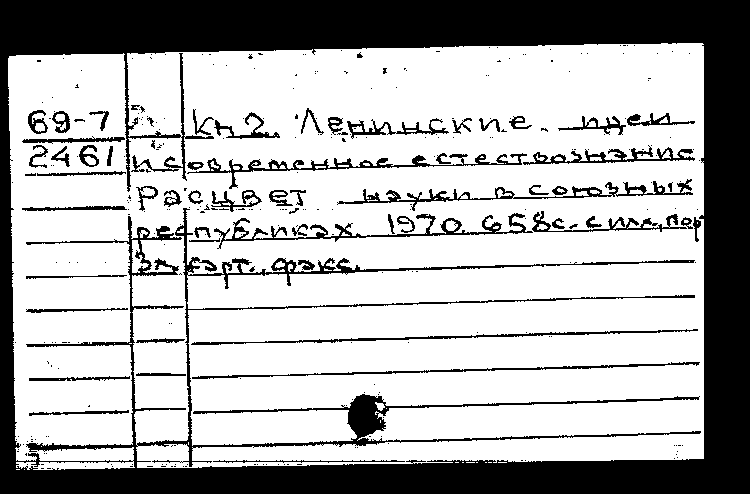 69-7 Кн 2. Ленинские идеи
2461 и современное естествознание.
Расцвет науки в союзных
республиках. 1970. 658с. с илл., пор
3л. карт., факс.